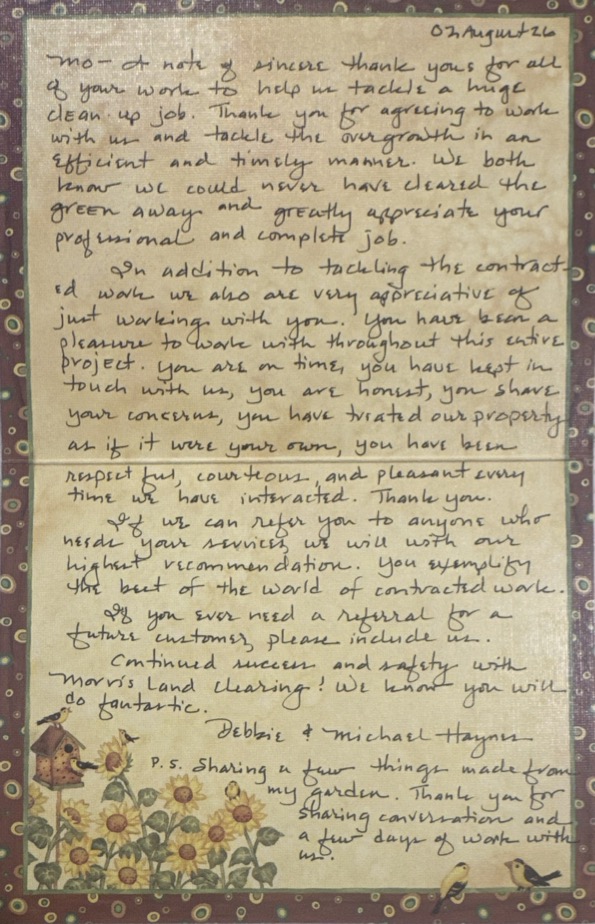 02 August 26
Mo - A note of sincere thank yous for all
of your work to help us tackle a huge
clean up job. Thank you for agreeing to work
with us and tackle the overgrowth in an
efficient and timely manner. We both
know we could never have cleared the
green away and greatly appreciate your
professional and complete job.
In addition to tackling the contract-
ed work we also are very appreciative of
just working with you. You have been a
pleasure to work with throughout this entire
project. You are on time, you have kept in
touch with us, you are honest, you share
your concerns, you have treated our property
as if it were your own, you have been
respectful, courteous, and pleasant every
time we have interacted. Thank you.
If we can refer you to anyone who
needs your services, we will with our
highest recommendation. You exemplify
the best of the world of contracted work.
If you ever need a referral for a
future customer, please include us.
Continued success and safety with
Morris Land Clearing! We know you will
do fantastic.
Debbie & Michael Haynes
P.S. Sharing a few things made from
my garden. Thank you for
sharing conversation and
a few days of work with
us.